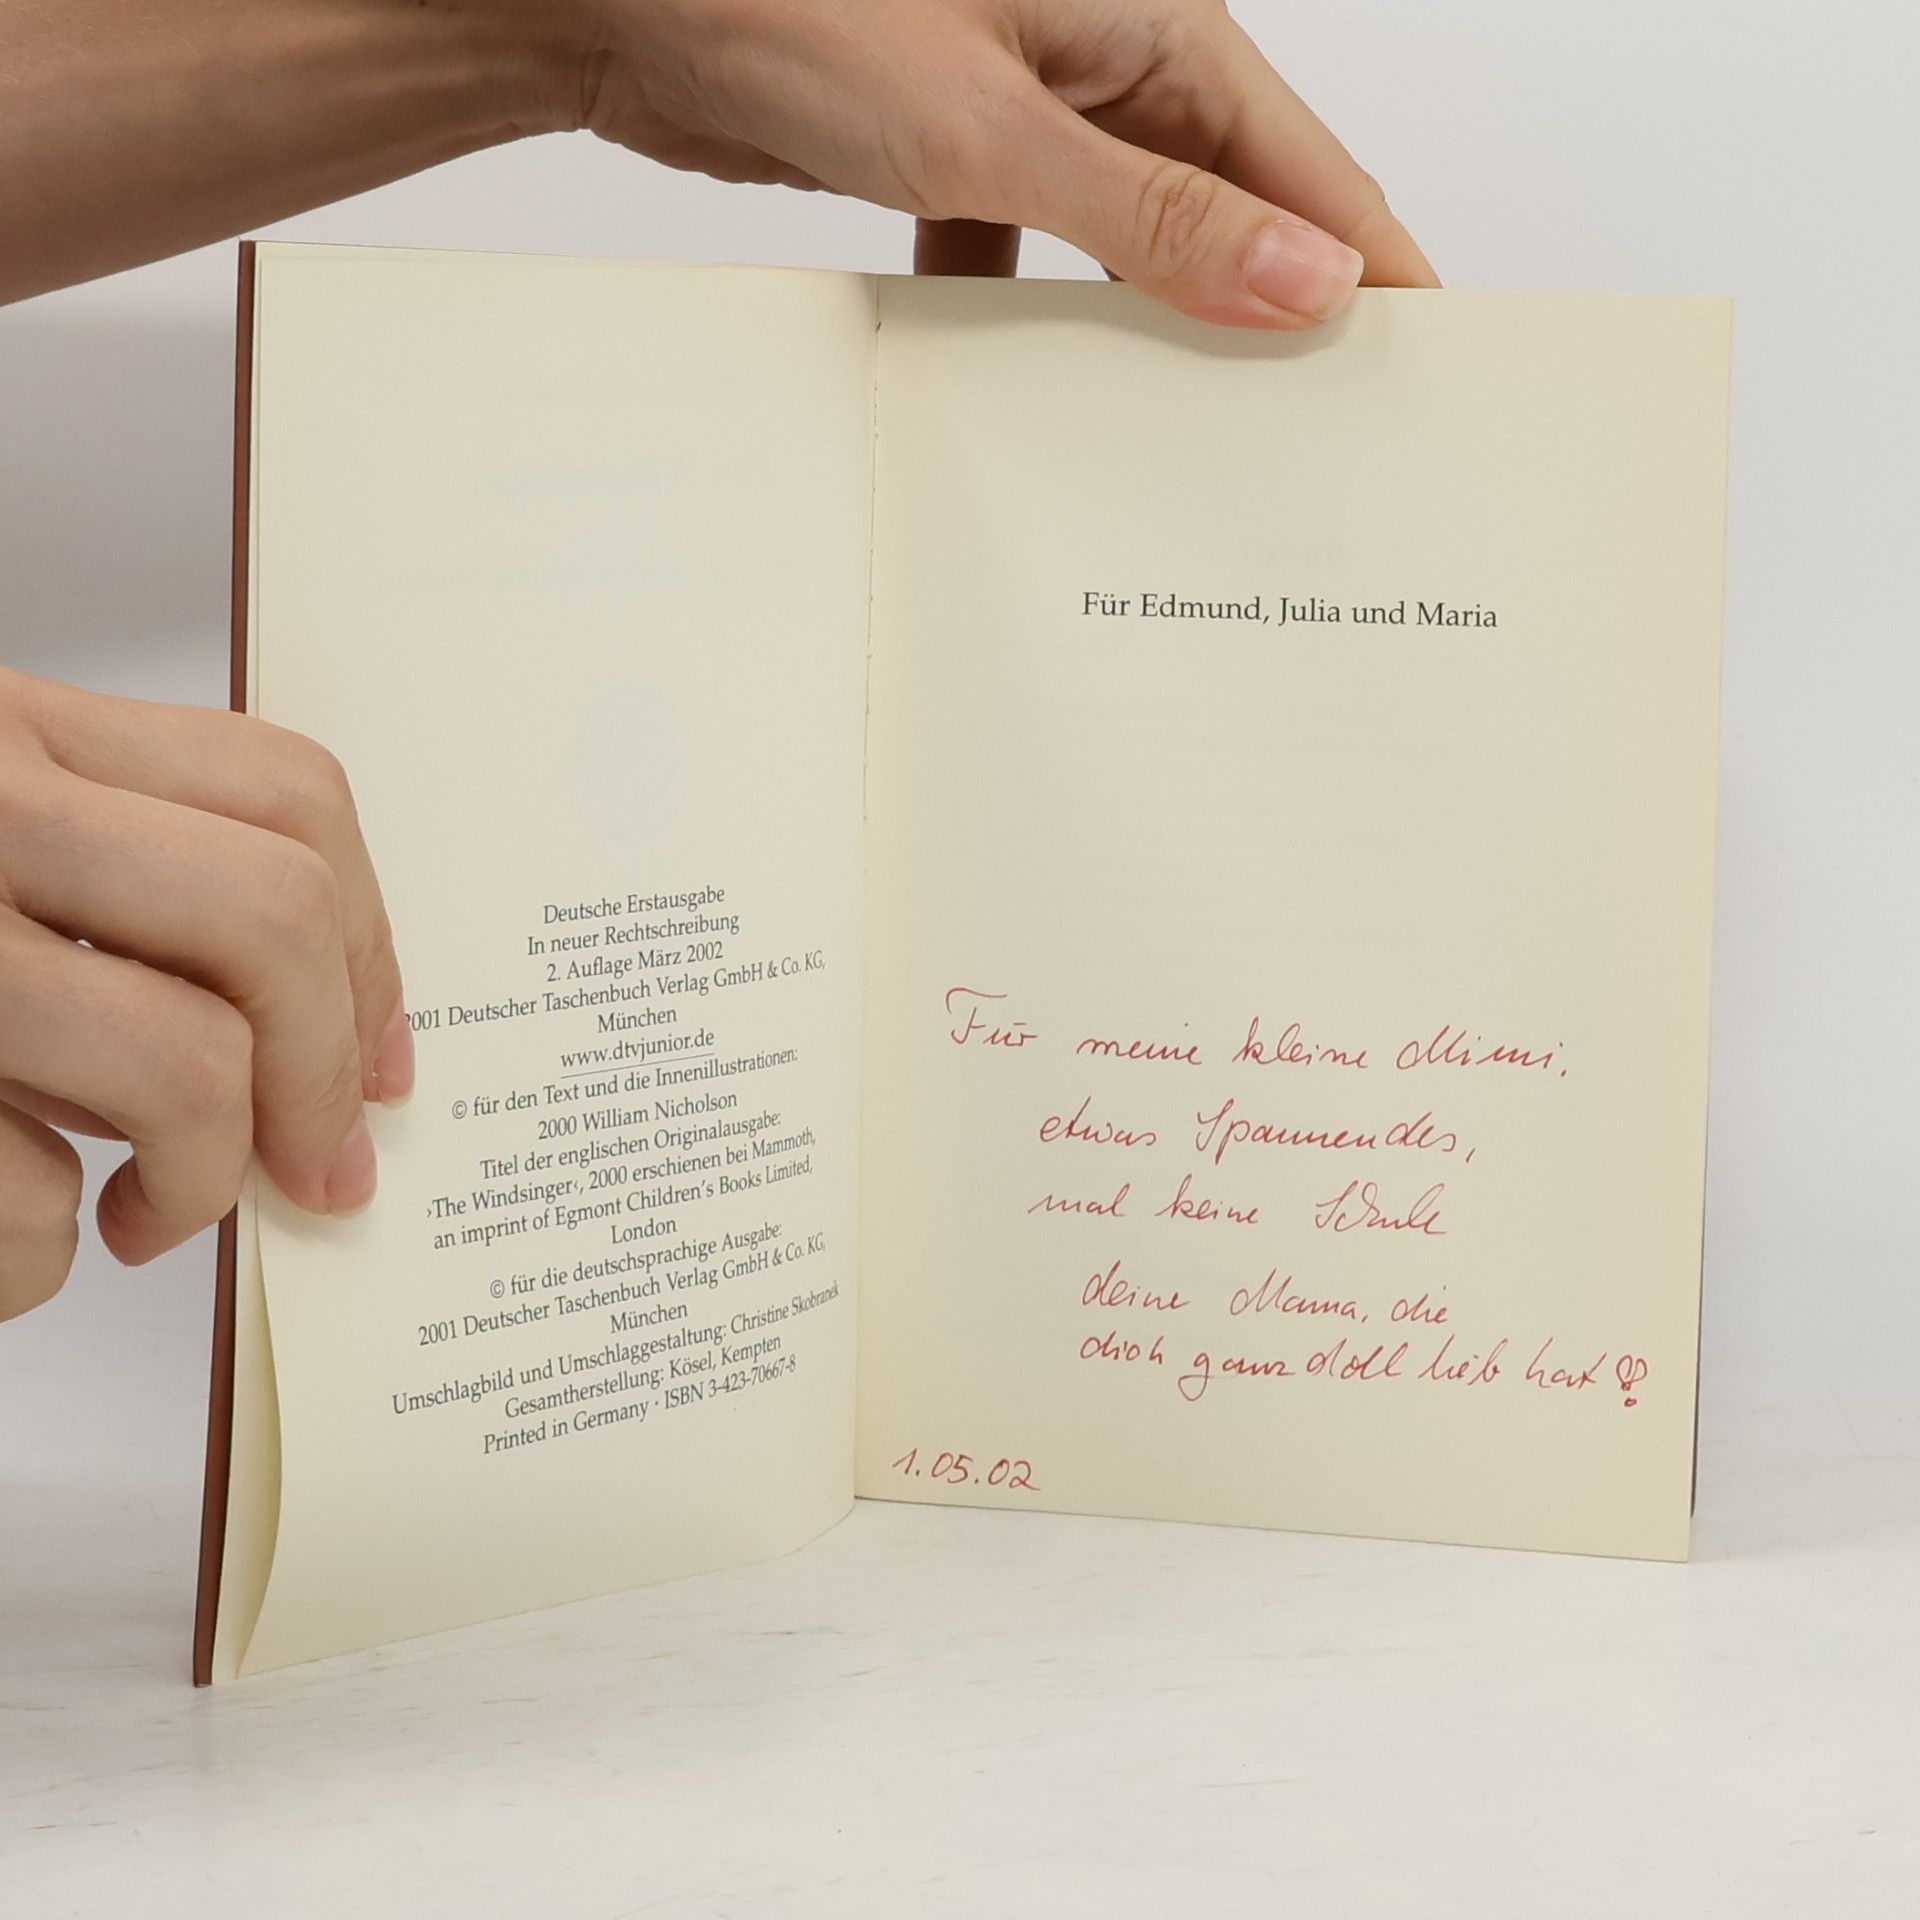 Deutsche Erstausgabe
In neuer Rechtschreibung
2. Auflage März 2002
2001 Deutscher Taschenbuch Verlag GmbH & Co. KG,
München
www.dtvjunior.de
© für den Text und die Innenillustrationen:
2000 William Nicholson
Titel der englischen Originalausgabe:
›The Windsinger‹, 2000 erschienen bei Mammoth,
an imprint of Egmont Children's Books Limited,
London
© für die deutschsprachige Ausgabe:
2001 Deutscher Taschenbuch Verlag GmbH & Co. KG,
München
Umschlagbild und Umschlaggestaltung: Christine Skobranek
Gesamtherstellung: Kösel, Kempten
Printed in Germany · ISBN 3-423-70667-8
Für Edmund, Julia und Maria
Für meine kleine Mimi,
etwas Spannendes,
mal keine Schule
deine Mama, die
dich ganz doll lieb hat
1.05.02